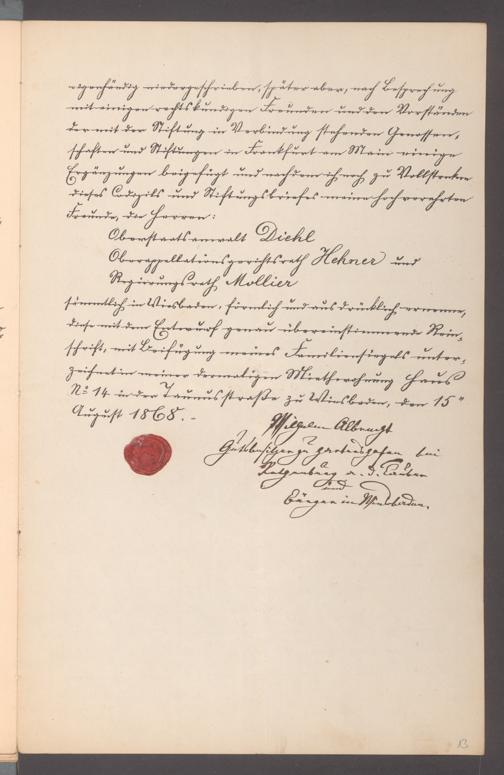 eigenhändig niedergeschrieben, später aber, nach Besprechung
mit einigen rechtskundigen Freunden und den Vorständen
der mit der Stiftung in Verbindung stehenden Genossen,
schaften und Stiftungen in Frankfurt am Main einige
Ergänzungen beigefügt und nachdem ich noch zu Vollstrecker
dieses Codizils und Stiftungsbriefes meine hochverehrten
Freunde, die Herren:
Oberstaatsanwalt Diehl
Oberappellationsgerichtsrath Hehner und
Regierungsrath Mollier
sämmtlich in Wiesbaden, förmlich und ausdrücklich ernenne,
diese mit dem Entwurf genau übereinstimmende Rein,
schrift, mit Beifügung meines Familiensiegels unter,
zeichnet in meiner dermaligen Miethwohnung Haus
No 14 in der Taunusstraße zu Wiesbaden, den 15"
August 1868. -
Wilhelm Albrecht
Gutsbesitzer zu bei
a. d. Tauber
und
Bürger in Wiesbaden.
13